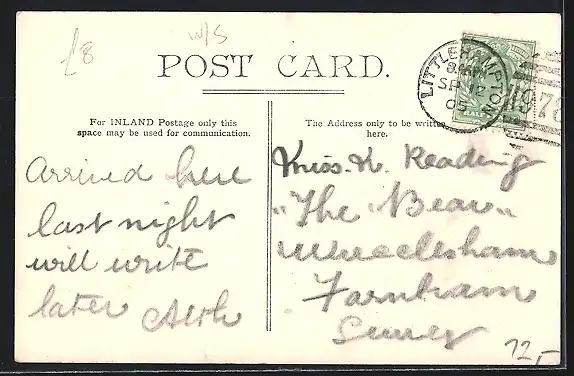 £8
W/S
POST CARD.
For INLAND Postage only this
space may be used for communication.
The Address only to be written
here.
LITTLEHAMPTON
SP 12
05
Arrived here
last night
will write
later Alth
Miss. K. Reading
"The Bear"
Wrecclesham
Farnham
Surrey
72,-